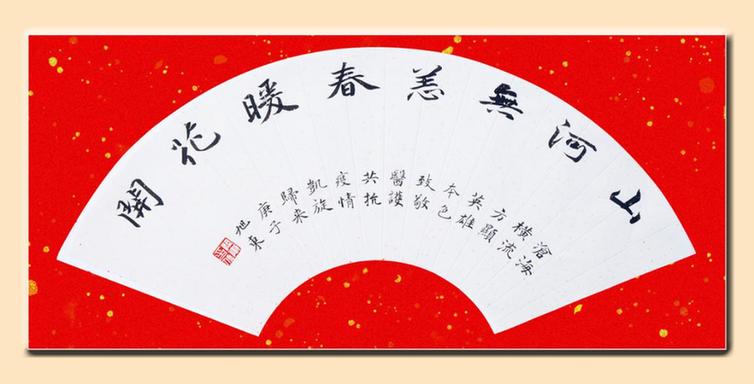 山河無恙春暖花開
滄海
横流
方顯
英雄
本色
致敬
醫護
共抗
疫情
凱旋
歸来
庚子
旭東